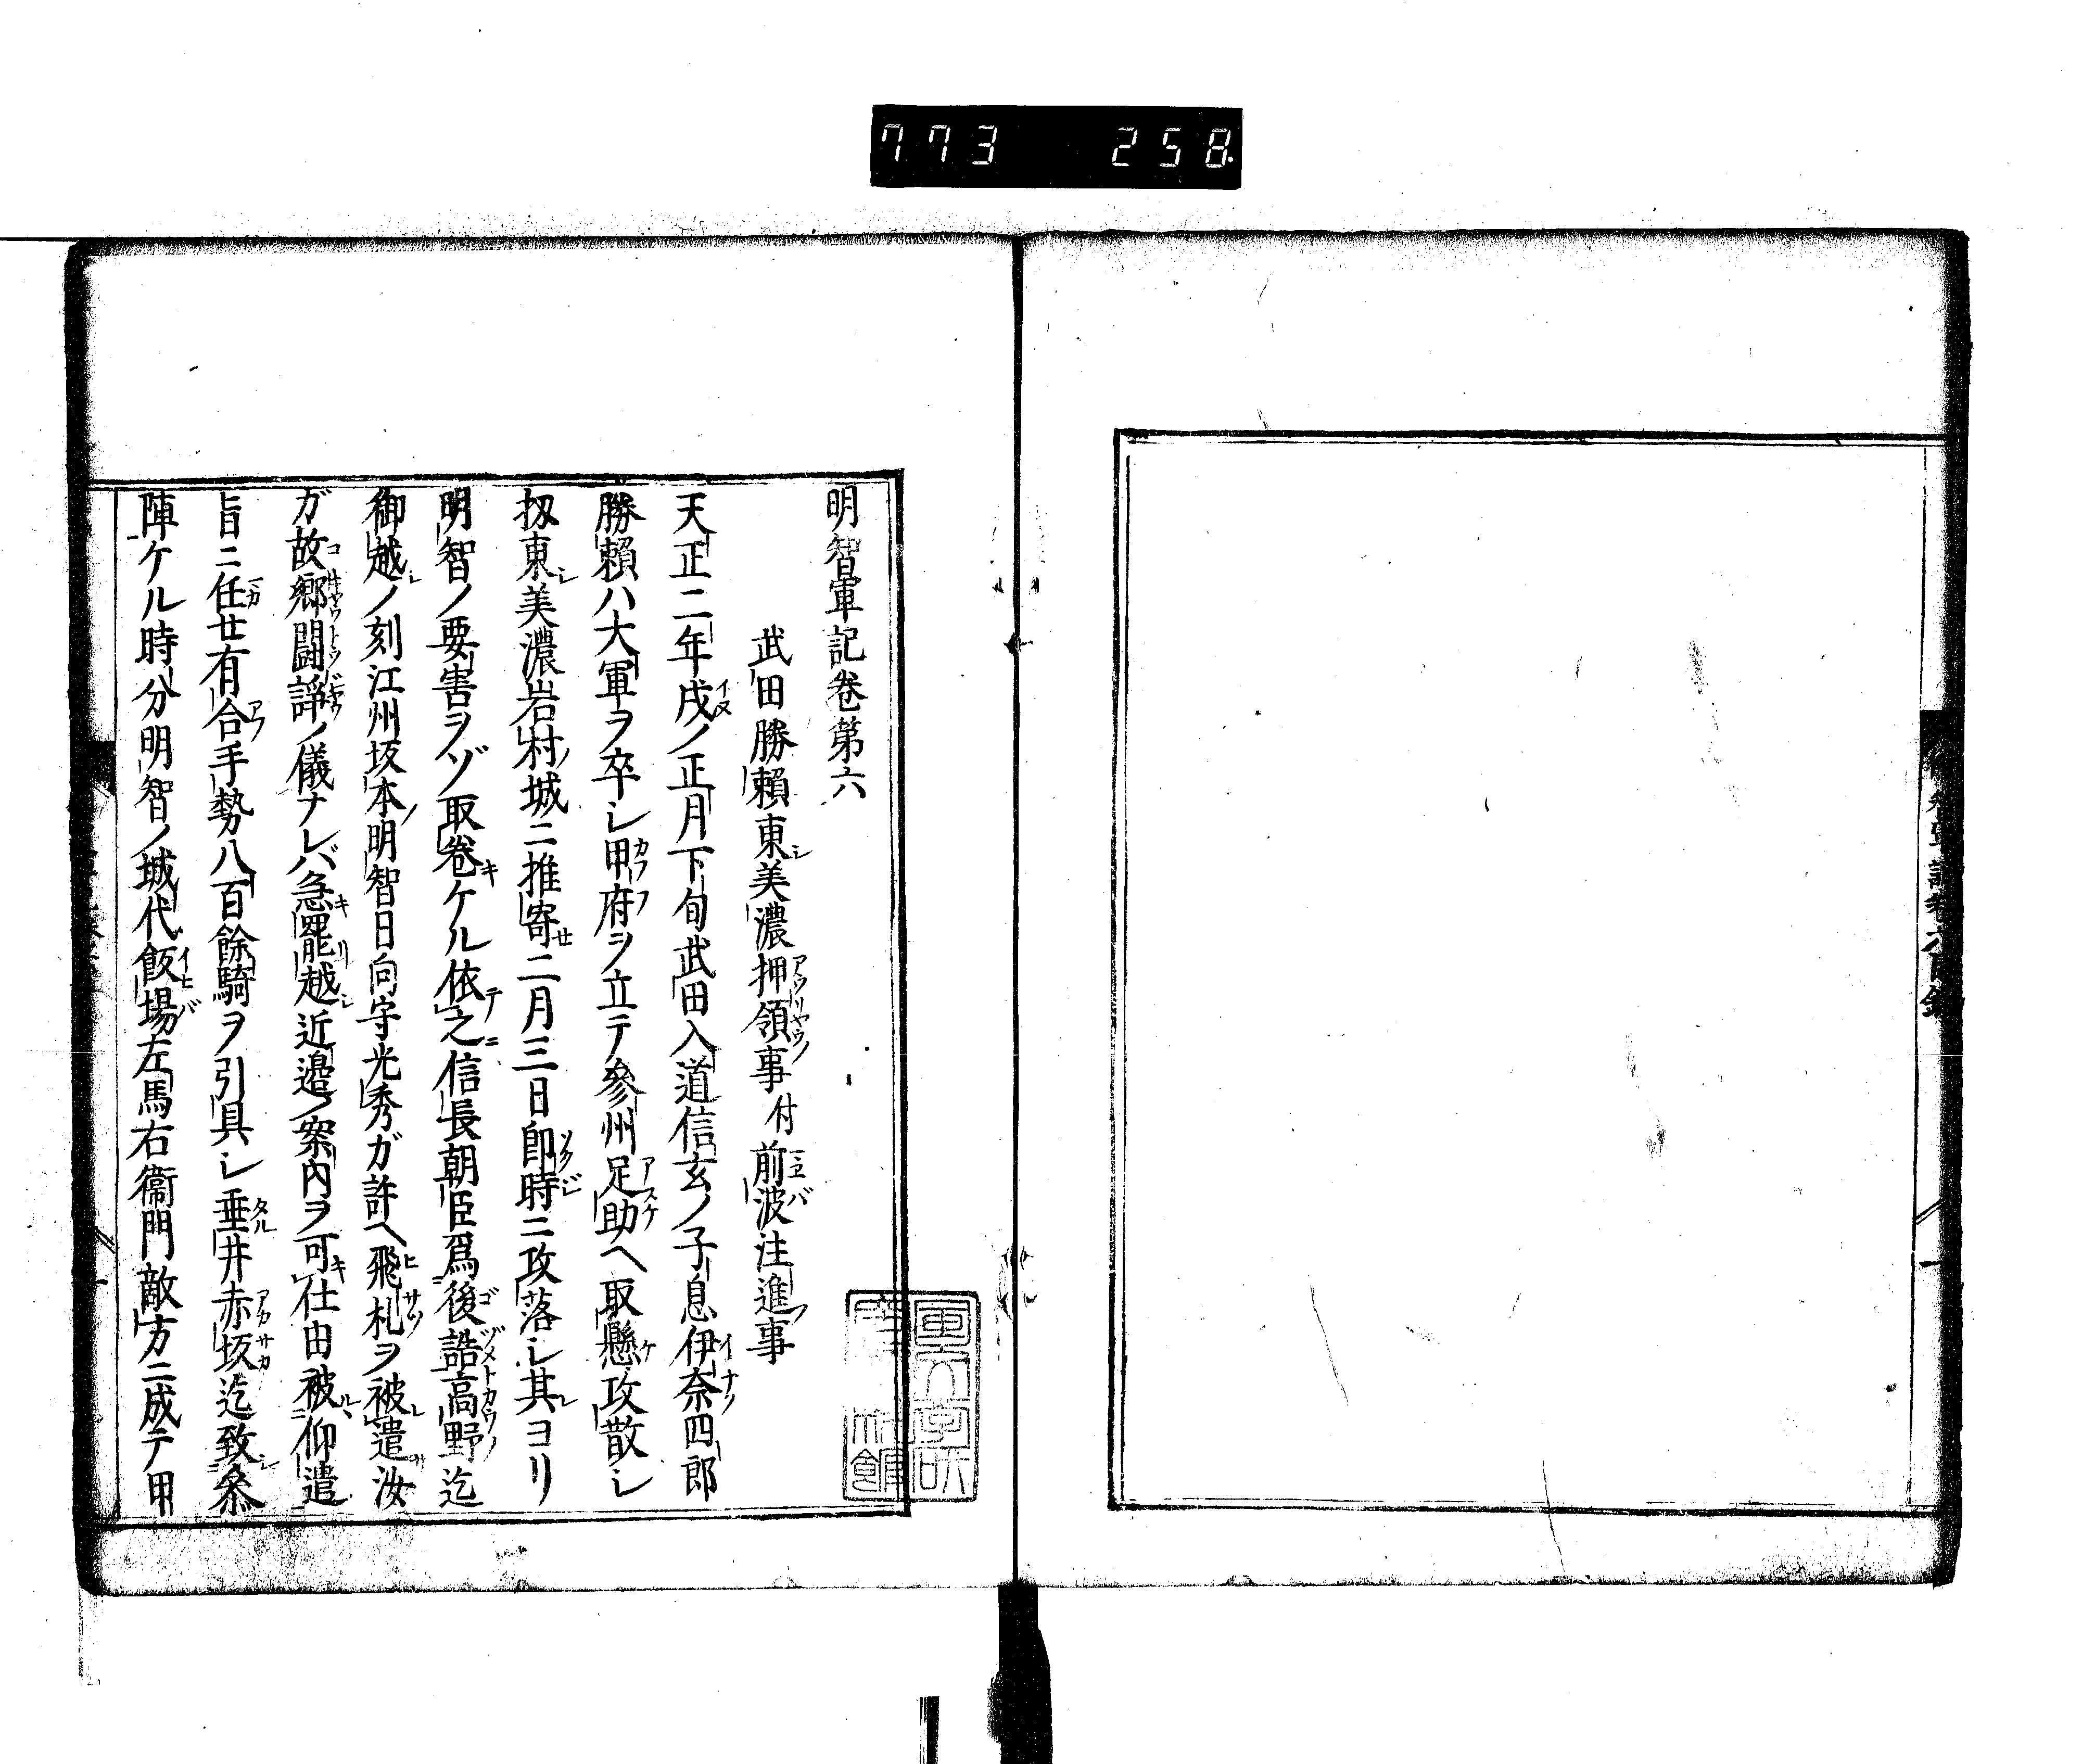 773 258
明智軍記卷第六
武田勝賴東美濃押領事付前波注進事
天正二年戌ノ正月下旬武田入道信玄ノ子息伊奈四郎
勝賴ハ大軍ヲ卒シ甲府ヲ立テ參州足助ヘ取懸攻散シ
扨東美濃岩村ノ城ニ推寄二月三日即時ニ攻落シ其ヨリ
明智ノ要害ヲゾ取卷ケル依之信長朝臣爲後誥高野迄
御越ノ刻江州坂本ノ明智日向守光秀ガ許ヘ飛札ヲ被遣汝
ガ故鄉鬪諍ノ儀ナレバ急罷越近邉ノ案內ヲ可仕由被仰遣
旨ニ任廿有合手勢八百餘騎ヲ引具シ垂井赤坂迄致叅
陣ケル時分明智ノ城代飯場左馬右衞門敵方ニ成テ甲